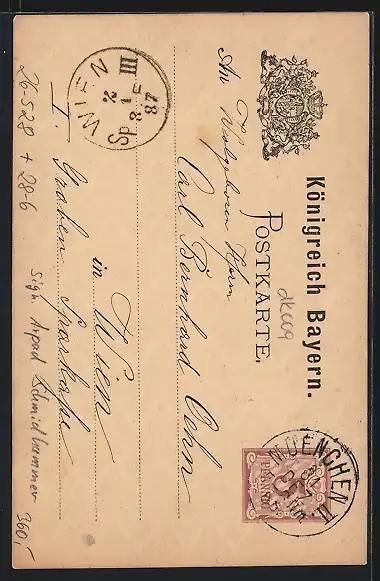 Königreich Bayern.
POSTKARTE.
An Wolgeboren Herrn
Carl Bernhard Cohn
in Wien
I Graben Sparkasse
MUENCHEN II
5
PFENNIG
WIEN
III
87
2
1
S
26-528 + 28-6
Sign. Arpad Schmidhammer
360,-